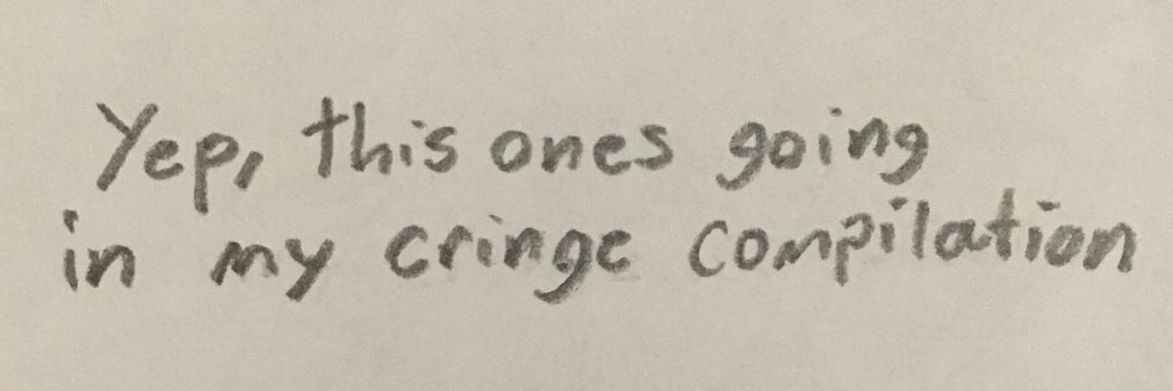 Yep, this ones going
in my cringe compilation